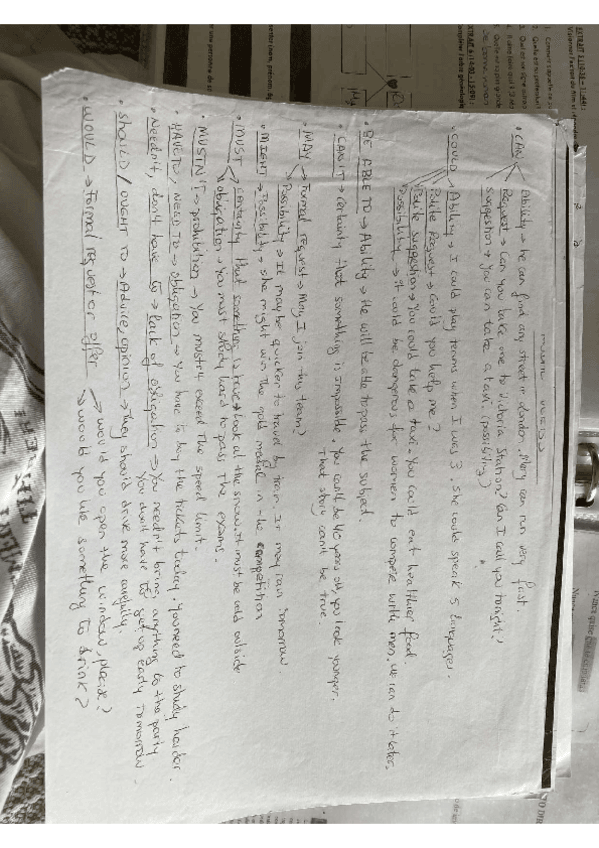 MODAL VERBS
• CAN Ability → He can find any street in London. Mary can run very fast.
Request → Can you take me to Victoria Station? Can I call you tonight?
Suggestion → You can take a taxi. (possibility)
• COULD Ability → I could play tennis when I was 3. She could speak 5 languages.
Polite Request → Could you help me?
Polite suggestion → You could take a taxi. You could eat healthier food
Possibility → It could be dangerous for women to compete with men. We can do it later.
• BE ABLE TO → Ability → He will be able to pass the subject.
• CAN'T → Certainty that something is impossible. You can't be 40 years old, you look younger.
That story can't be true.
• MAY → Formal request → May I join this team?
Possibility → It may be quicker to travel by train. It may rain tomorrow.
• MIGHT → Possibility → She might win the gold medal in the competition
• MUST → certainty that something is true → Look at the snow. It must be cold outside
obligation → You must study hard to pass the exams.
• MUSTN'T → prohibition → You mustn't exceed the speed limit.
• HAVE TO, NEED TO → obligation → You have to buy the tickets today. You need to study harder.
• Needn't, don't have to → lack of obligation → You needn't bring anything to the party
You don't have to get up early tomorrow.
• SHOULD / OUGHT TO → Advice, opinion → They should drive more carefully.
• WOULD → Formal request or offer → Would you open the window, please?
→ Would you like something to drink?
EXTRAIT 5
EXTRAIT 6